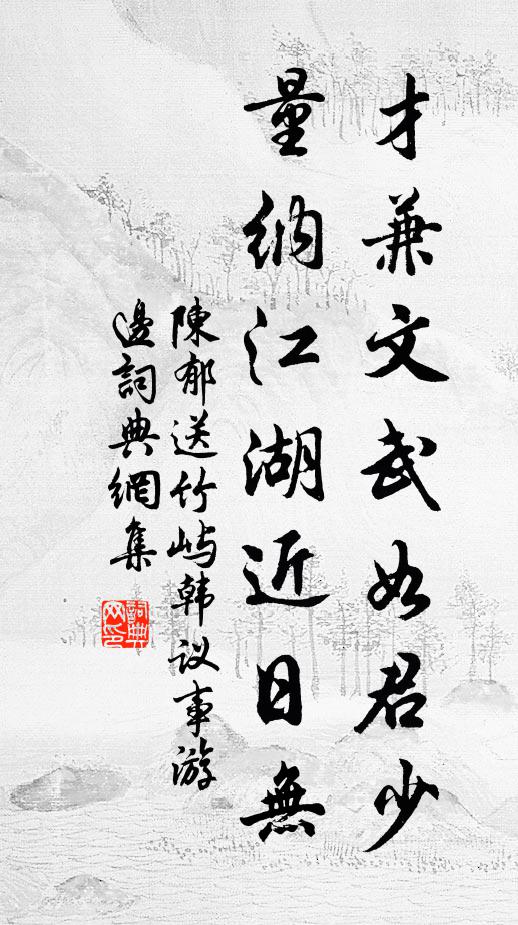 才兼文武如君少
量纳江湖近日無
陳郁送竹屿韩议事游
邊詞典網集
詞典网印